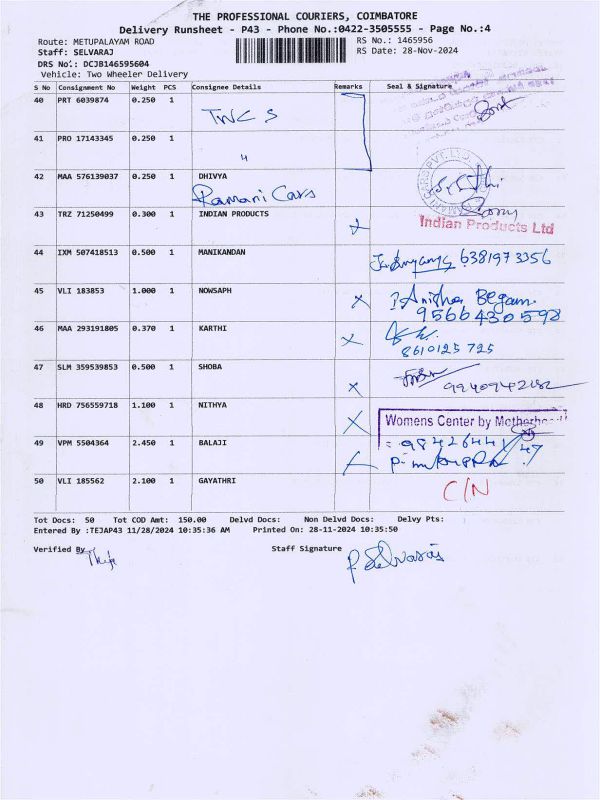 THE PROFESSIONAL COURIERS, COIMBATORE
Delivery Runsheet - P43 - Phone No.:0422-3505555 - Page No.:4
Route: METUPALAYAM ROAD
RS No.: 1465956
Staff: SELVARAJ
RS Date: 28-Nov-2024
DRS No: DCJB146595604
Vehicle: Two Wheeler Delivery
S No Consignment No Weight PCS Consignee Details Remarks Seal & Signature
40 PRT 6039874 0.250 1
TWC S
41 PRO 17143345 0.250 1
"
42 MAA 576139037 0.250 1 DHIVYA
Ramani Cars
43 TRZ 71250499 0.300 1 INDIAN PRODUCTS
Indian Products Ltd
44 IXM 507418513 0.500 1 MANIKANDAN
6381973356
45 VLI 183853 1.000 1 NOWSAPH
Anisha Begam
9566430598
46 MAA 293191805 0.370 1 KARTHI
8610125 725
47 SLM 359539853 0.500 1 SHOBA
48 HRD 756559718 1.100 1 NITHYA
Womens Center by Motherhood
49 VPM 5504364 2.450 1 BALAJI
50 VLI 185562 2.100 1 GAYATHRI
C/N
Tot Docs: 50 Tot COD Amt: 150.00 Delvd Docs: Non Delvd Docs: Delvy Pts:
Entered By :TEJAP43 11/28/2024 10:35:36 AM Printed On: 28-11-2024 10:35:50
Verified By
Staff Signature
P Selvaraj